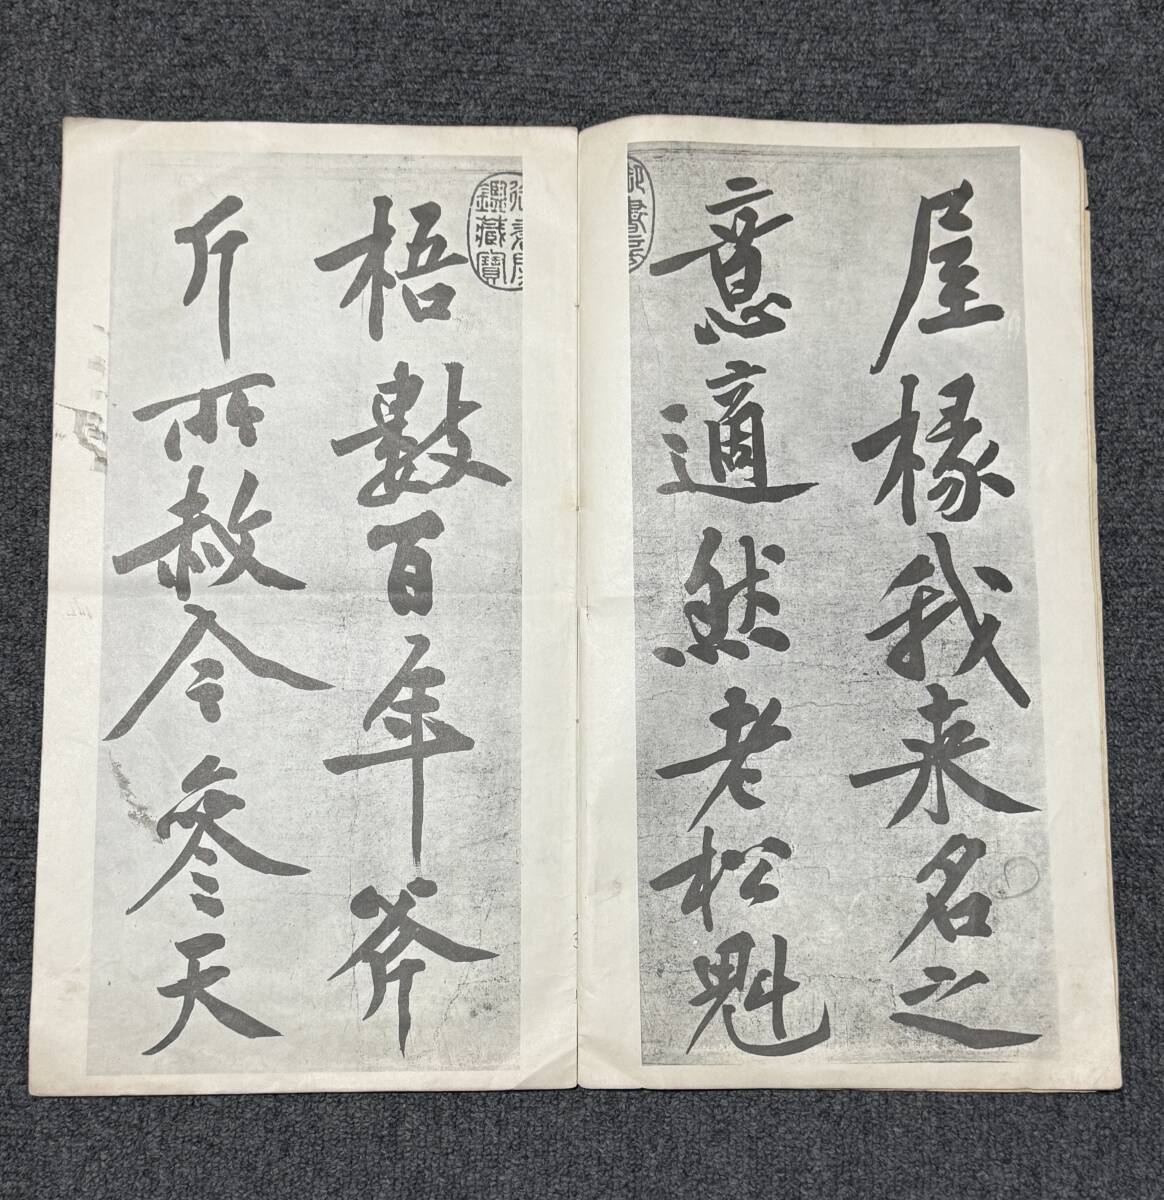 屋椽我来名之
意適然老松魁
梧數百年斧
斤所赦令參天
鑑藏寶